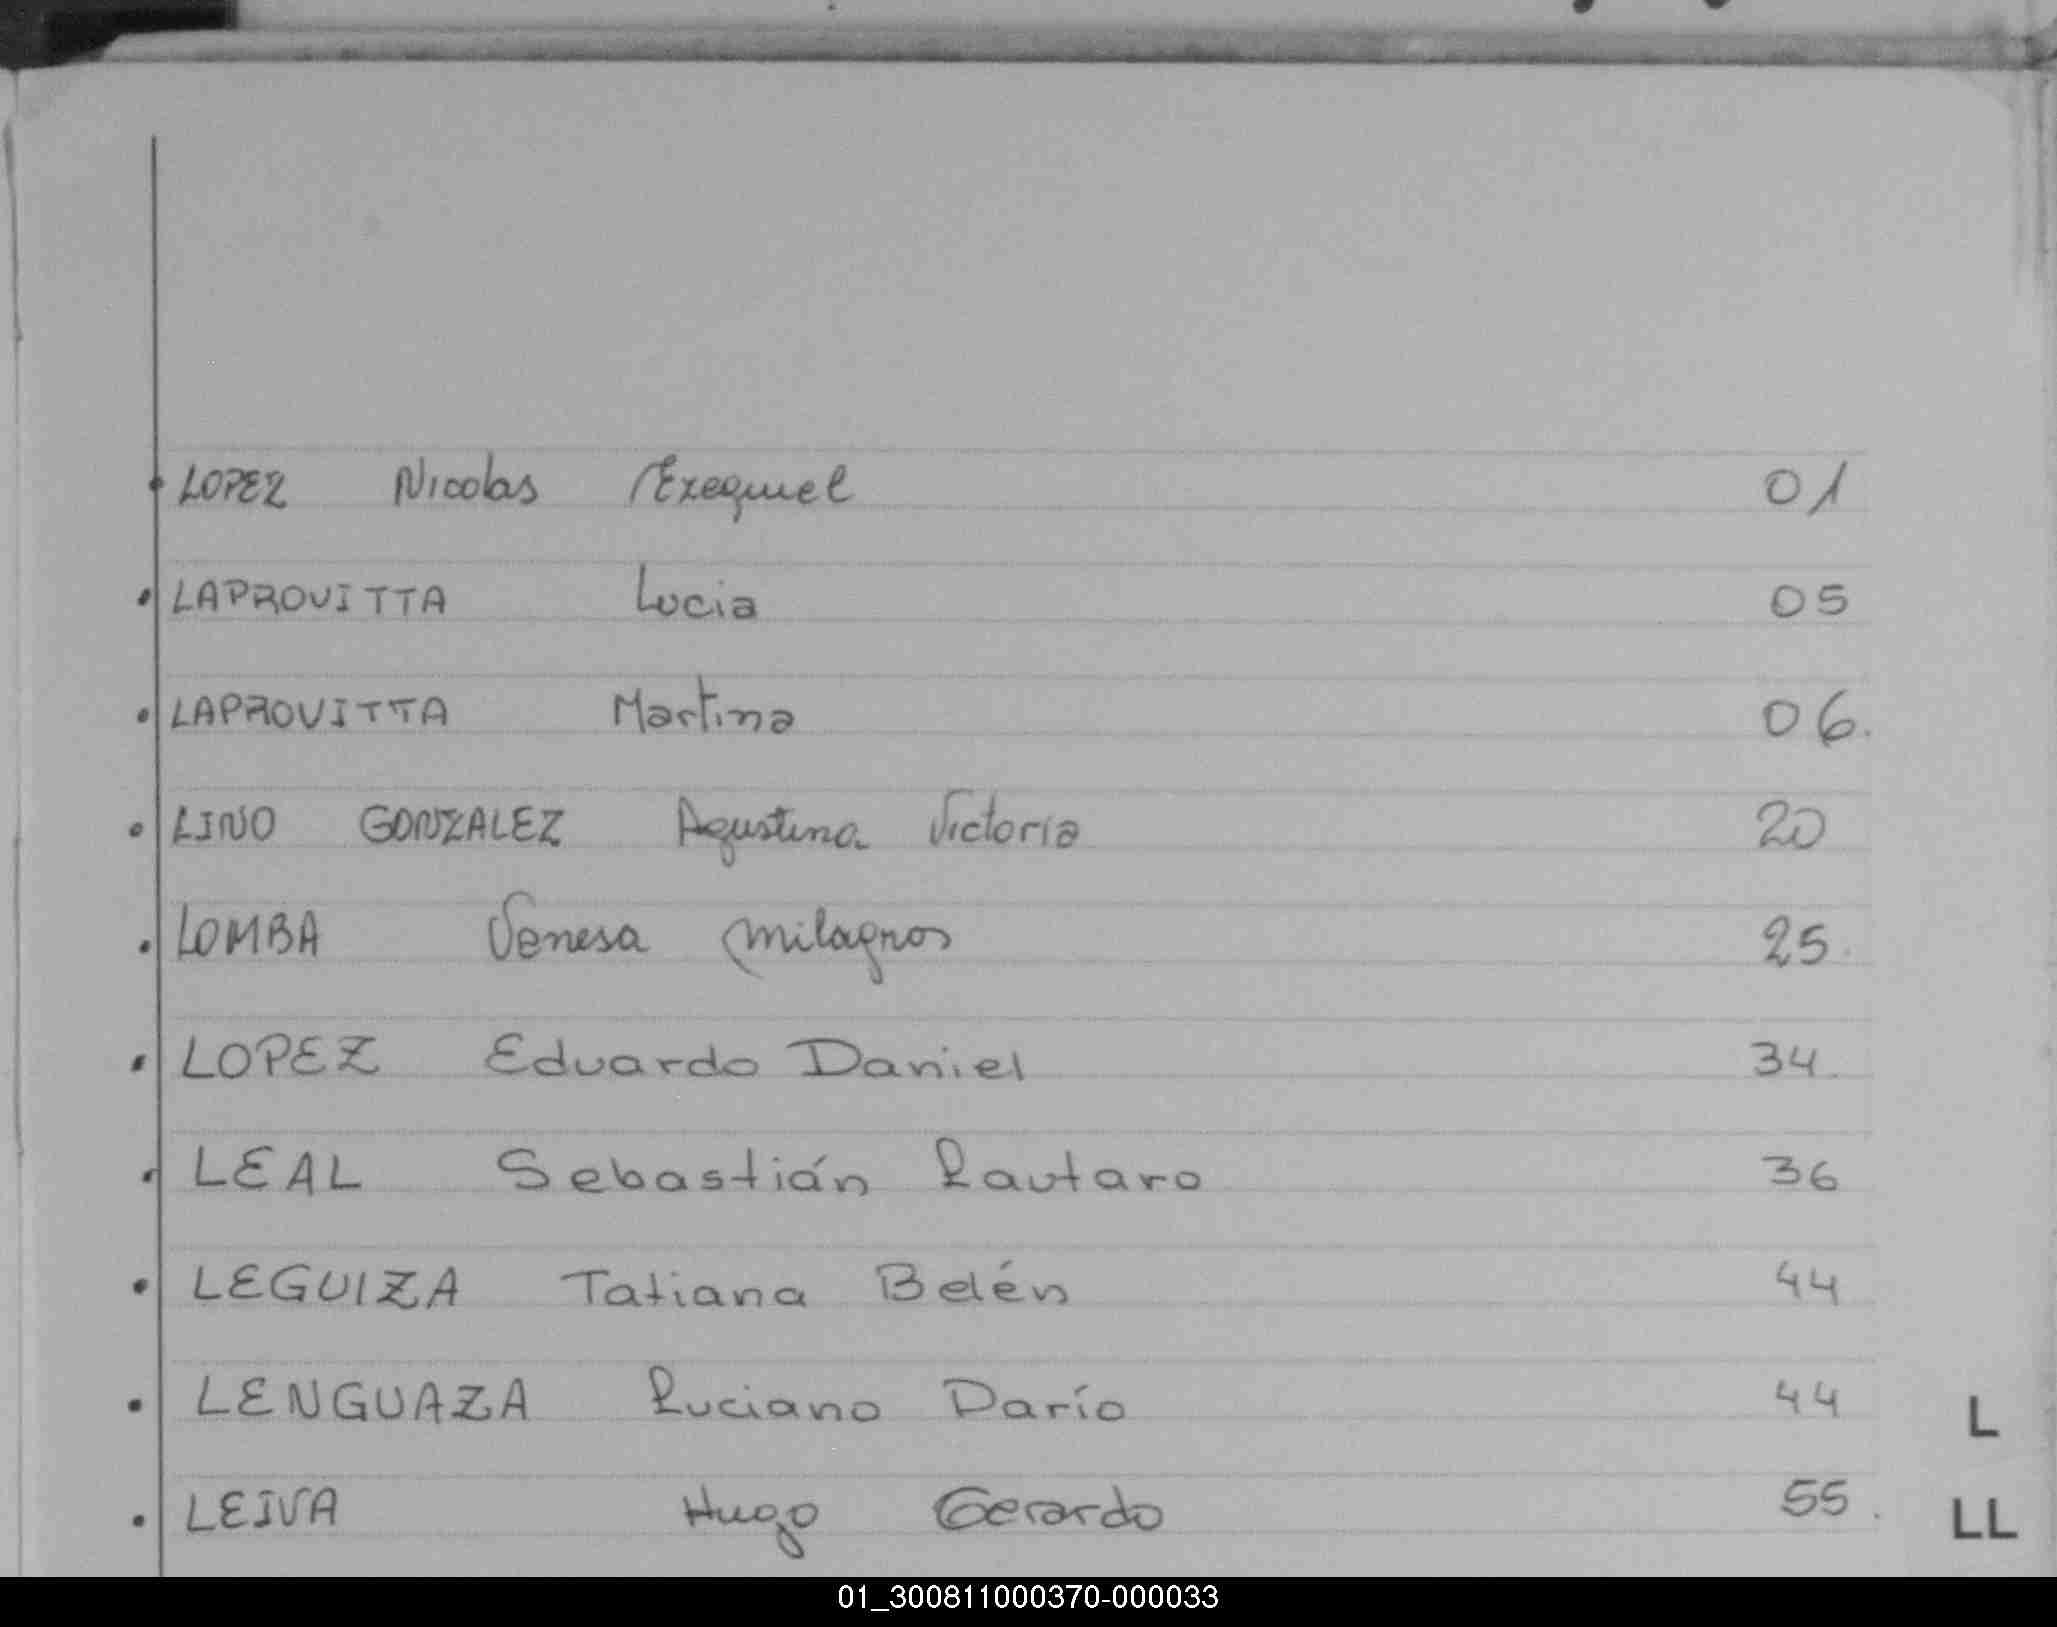 LOPEZ Nicolas Exequiel 01
LAPROVITTA Lucia 05
LAPROVITTA Martina 06.
LINO GONZALEZ Agustina Victoria 20
LOMBA Venesa Milagros 25.
LOPEZ Eduardo Daniel 34.
LEAL Sebastián Lautaro 36
LEGUIZA Tatiana Belén 44
LENGUAZA Luciano Darío 44
L
LEIVA Hugo Gerardo 55.
LL
01_300811000370-000033